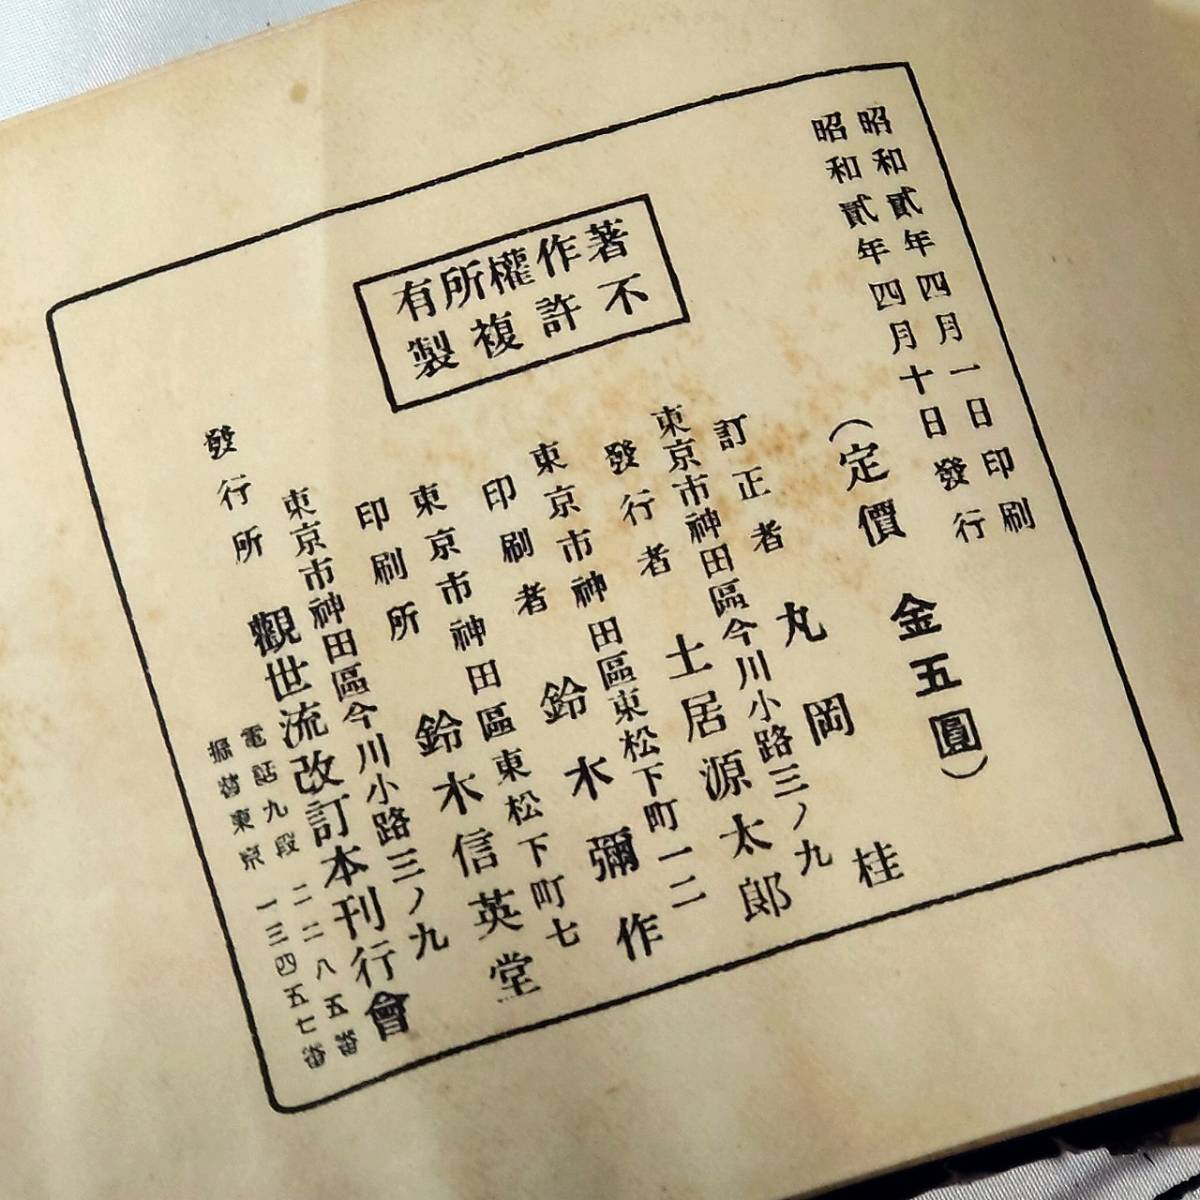 昭和貳年四月一日印刷
昭和貳年四月十日發行
(定價 金五圓)
著作權所有
不許複製
訂正者 丸岡桂
東京市神田區今川小路三ノ九
發行者 土居源太郎
東京市神田區東松下町一二
印刷者 鈴木彌作
東京市神田區東松下町七
印刷所 鈴木信英堂
東京市神田區今川小路三ノ九
發行所 觀世流改訂本刊行會
電話九段二二八五番
振替東京一三四五七番